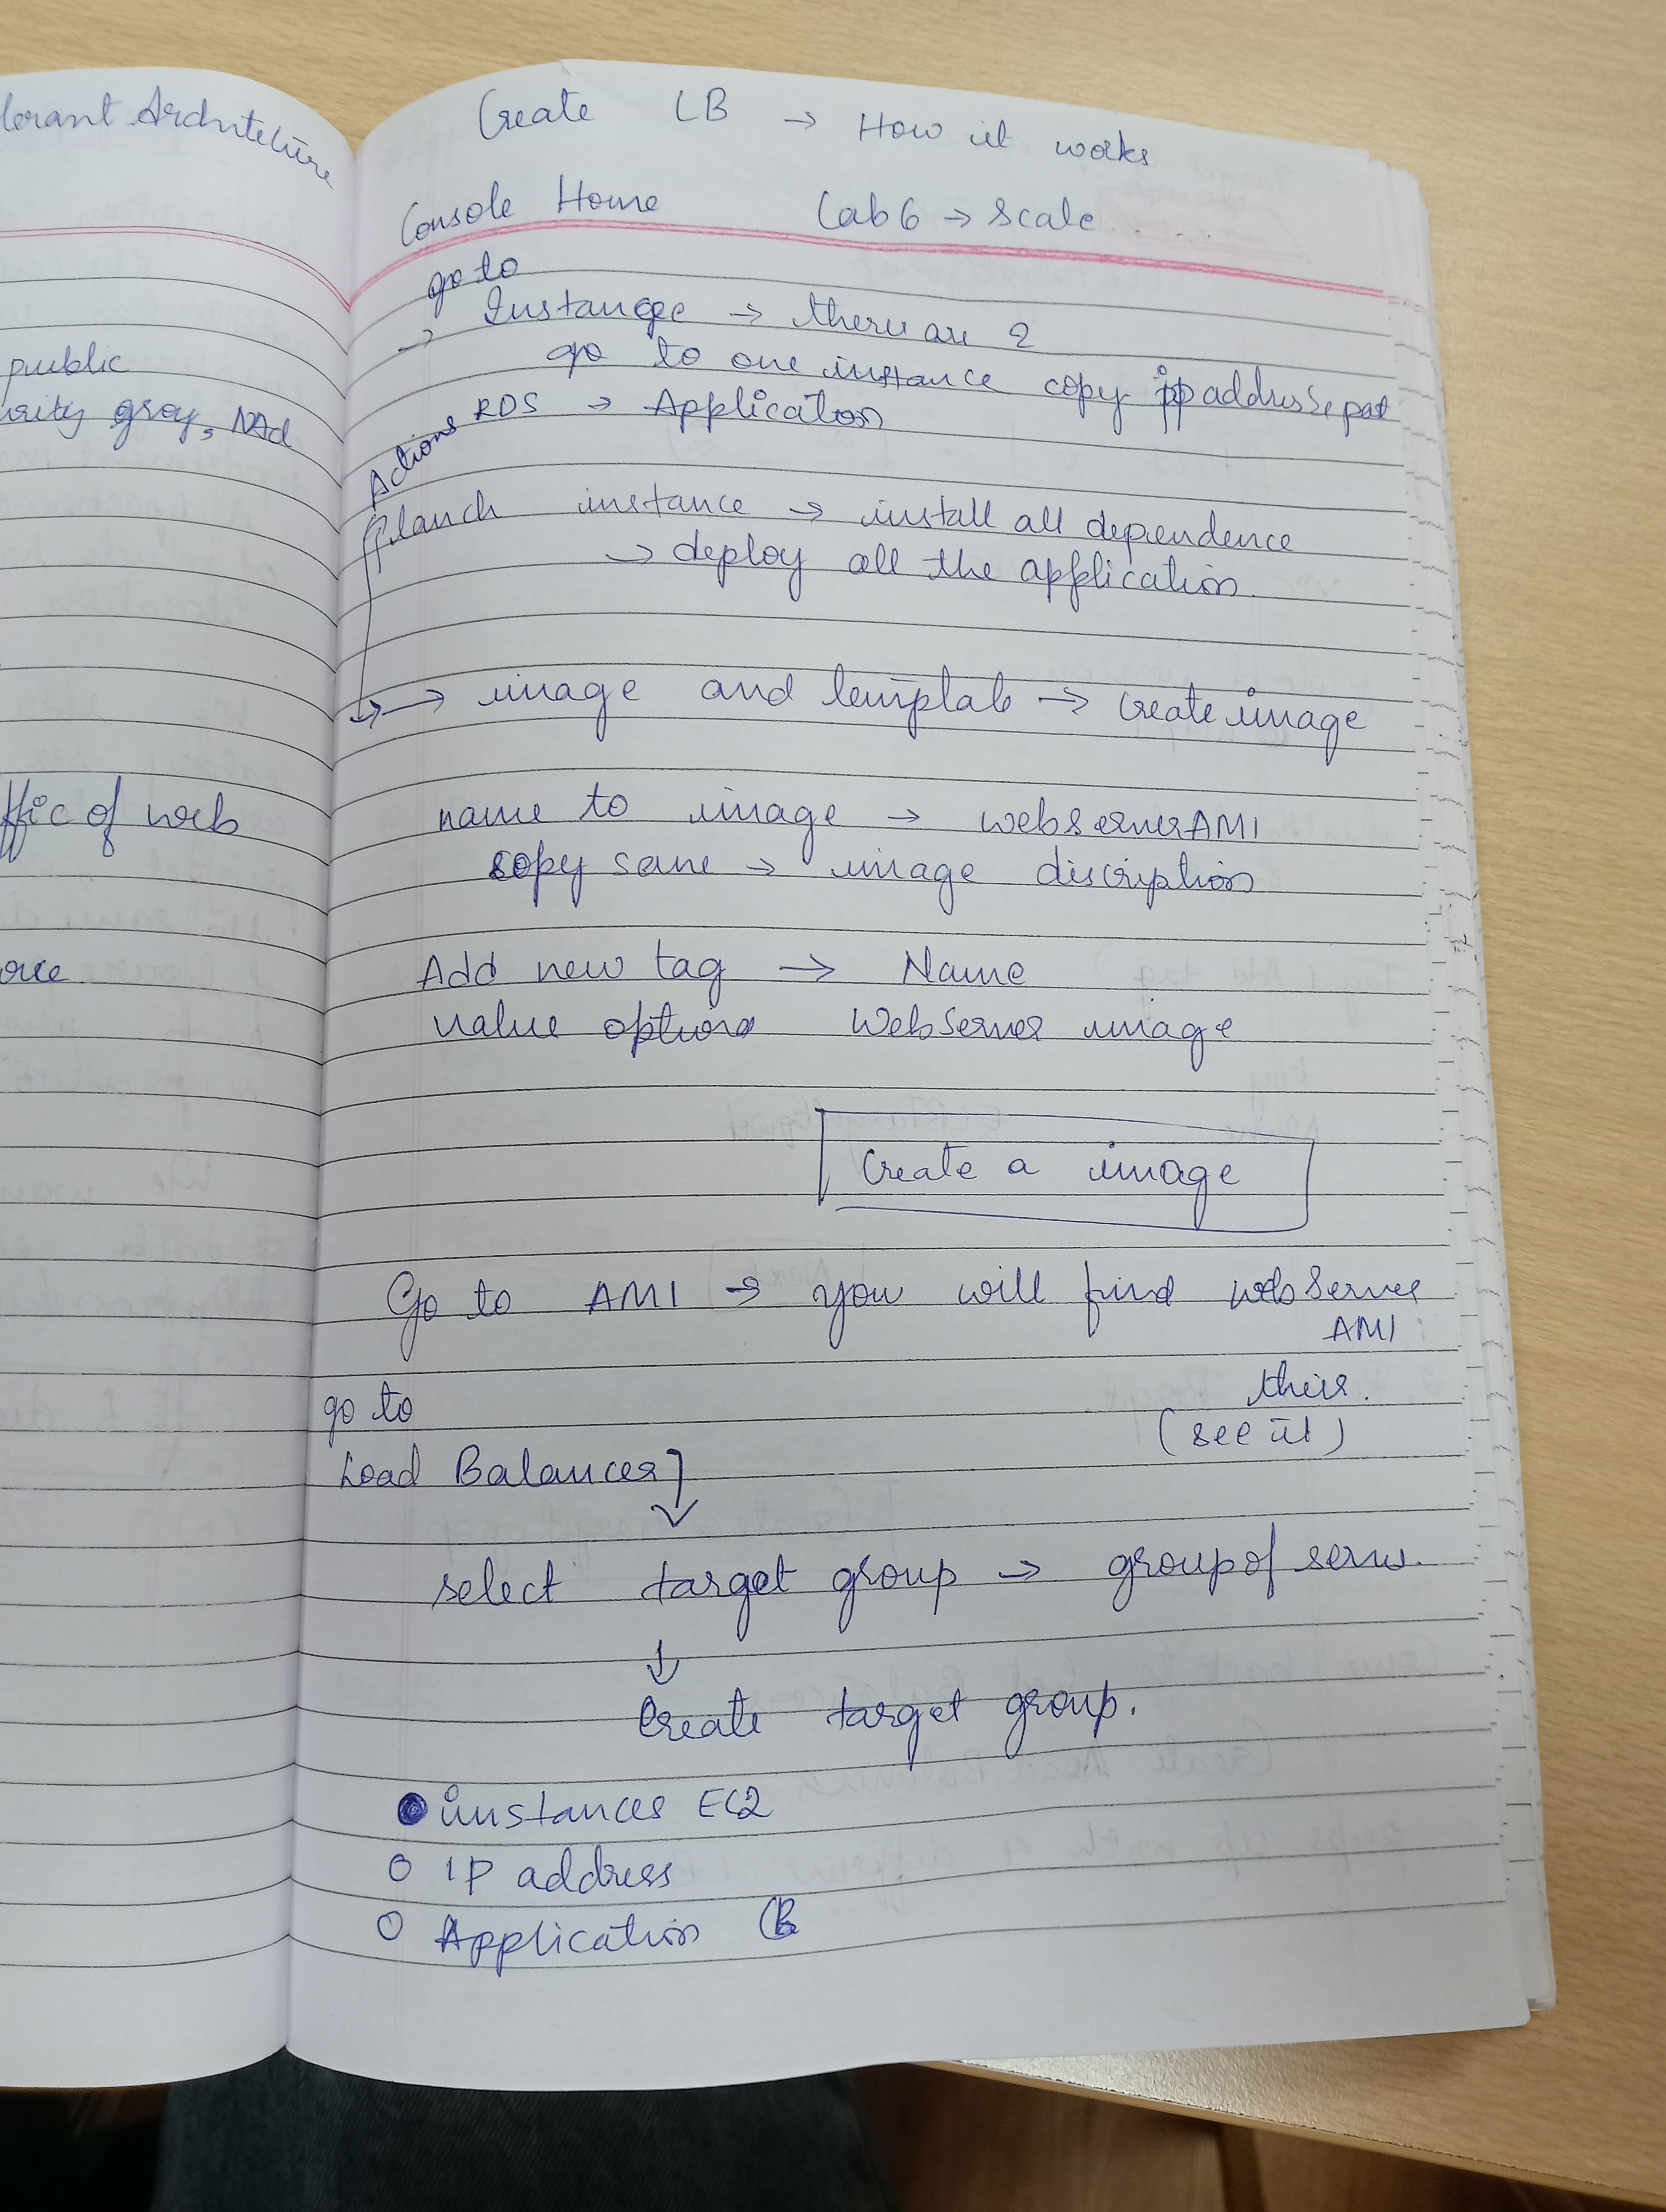 lerant Architecture
public
urity group, NAd
ffic of web
orce
Create LB → How it works
Console Home Lab 6 → Scale .....
go to
→ Instance → there are 2
go to one instance copy ip address & past
Actions RDS → Application
launch instance → install all dependence
→ deploy all the application
→ image and template → create image
name to image → webserverAMI
copy same → image discription
Add new tag → Name
value option WebServer image
Create a image
Go to AMI → you will find webServer
AMI
this.
(see it)
go to
Load Balancer
↓
select target group → group of serve.
↓
Create target group.
● instances EC2
○ IP address
○ Application LB